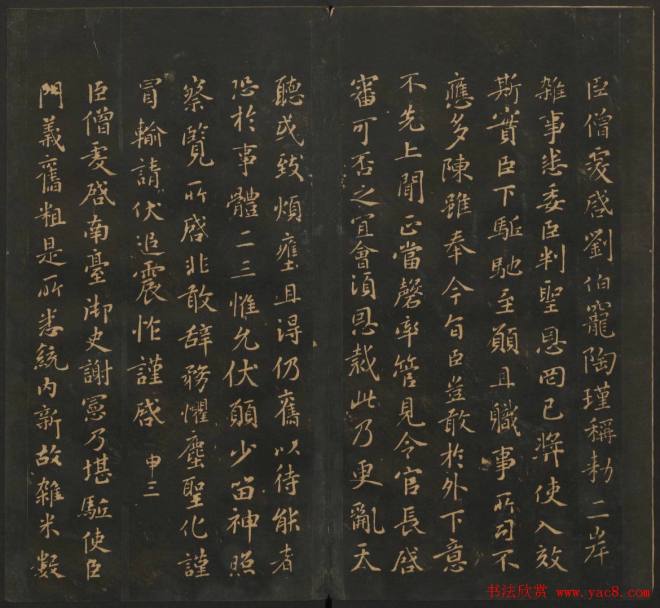 臣僧虔啓劉伯寵陶瑾稱勅二岸
雜事悉委臣判聖恩罔已將使入效
斯實臣下駈馳至願且職事所司不
應多陳雖奉今旨臣豈敢於外下意
不先上聞正當罄率管見令官長啓
審可否之宜會須恩裁此乃更亂天
聽或致煩壅且得仍舊以待能者
恐於事體二三惟允伏願少留神照
察覽所啓非敢辭務懼塵聖化謹
冒輸請伏追震怍謹啓 申三
臣僧虔啓南臺御史謝憲乃堪駈使臣
門義舊粗是所悉統內新故雜米數
书法欣赏 www.yac8.com